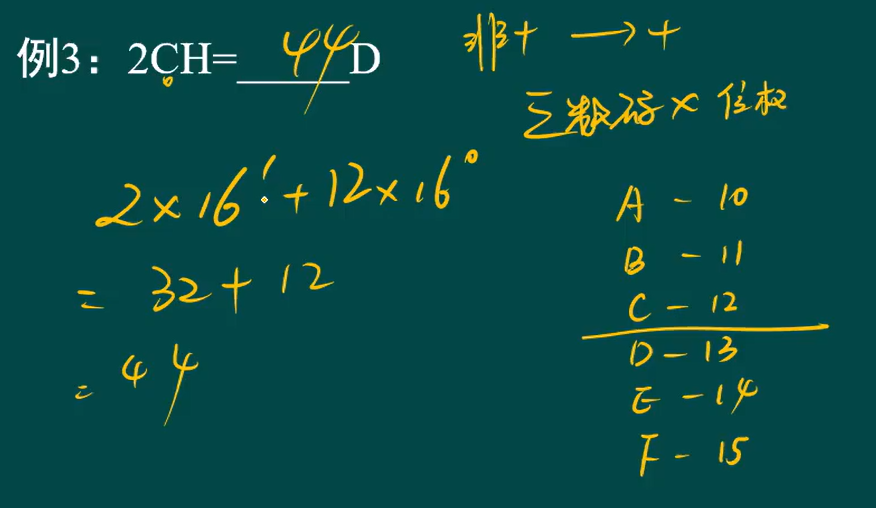 例3：2CH=44D
非十 → 十
∑数码×位权
2×16¹+12×16⁰
= 32+12
= 44
A - 10
B - 11
C - 12
D - 13
E - 14
F - 15